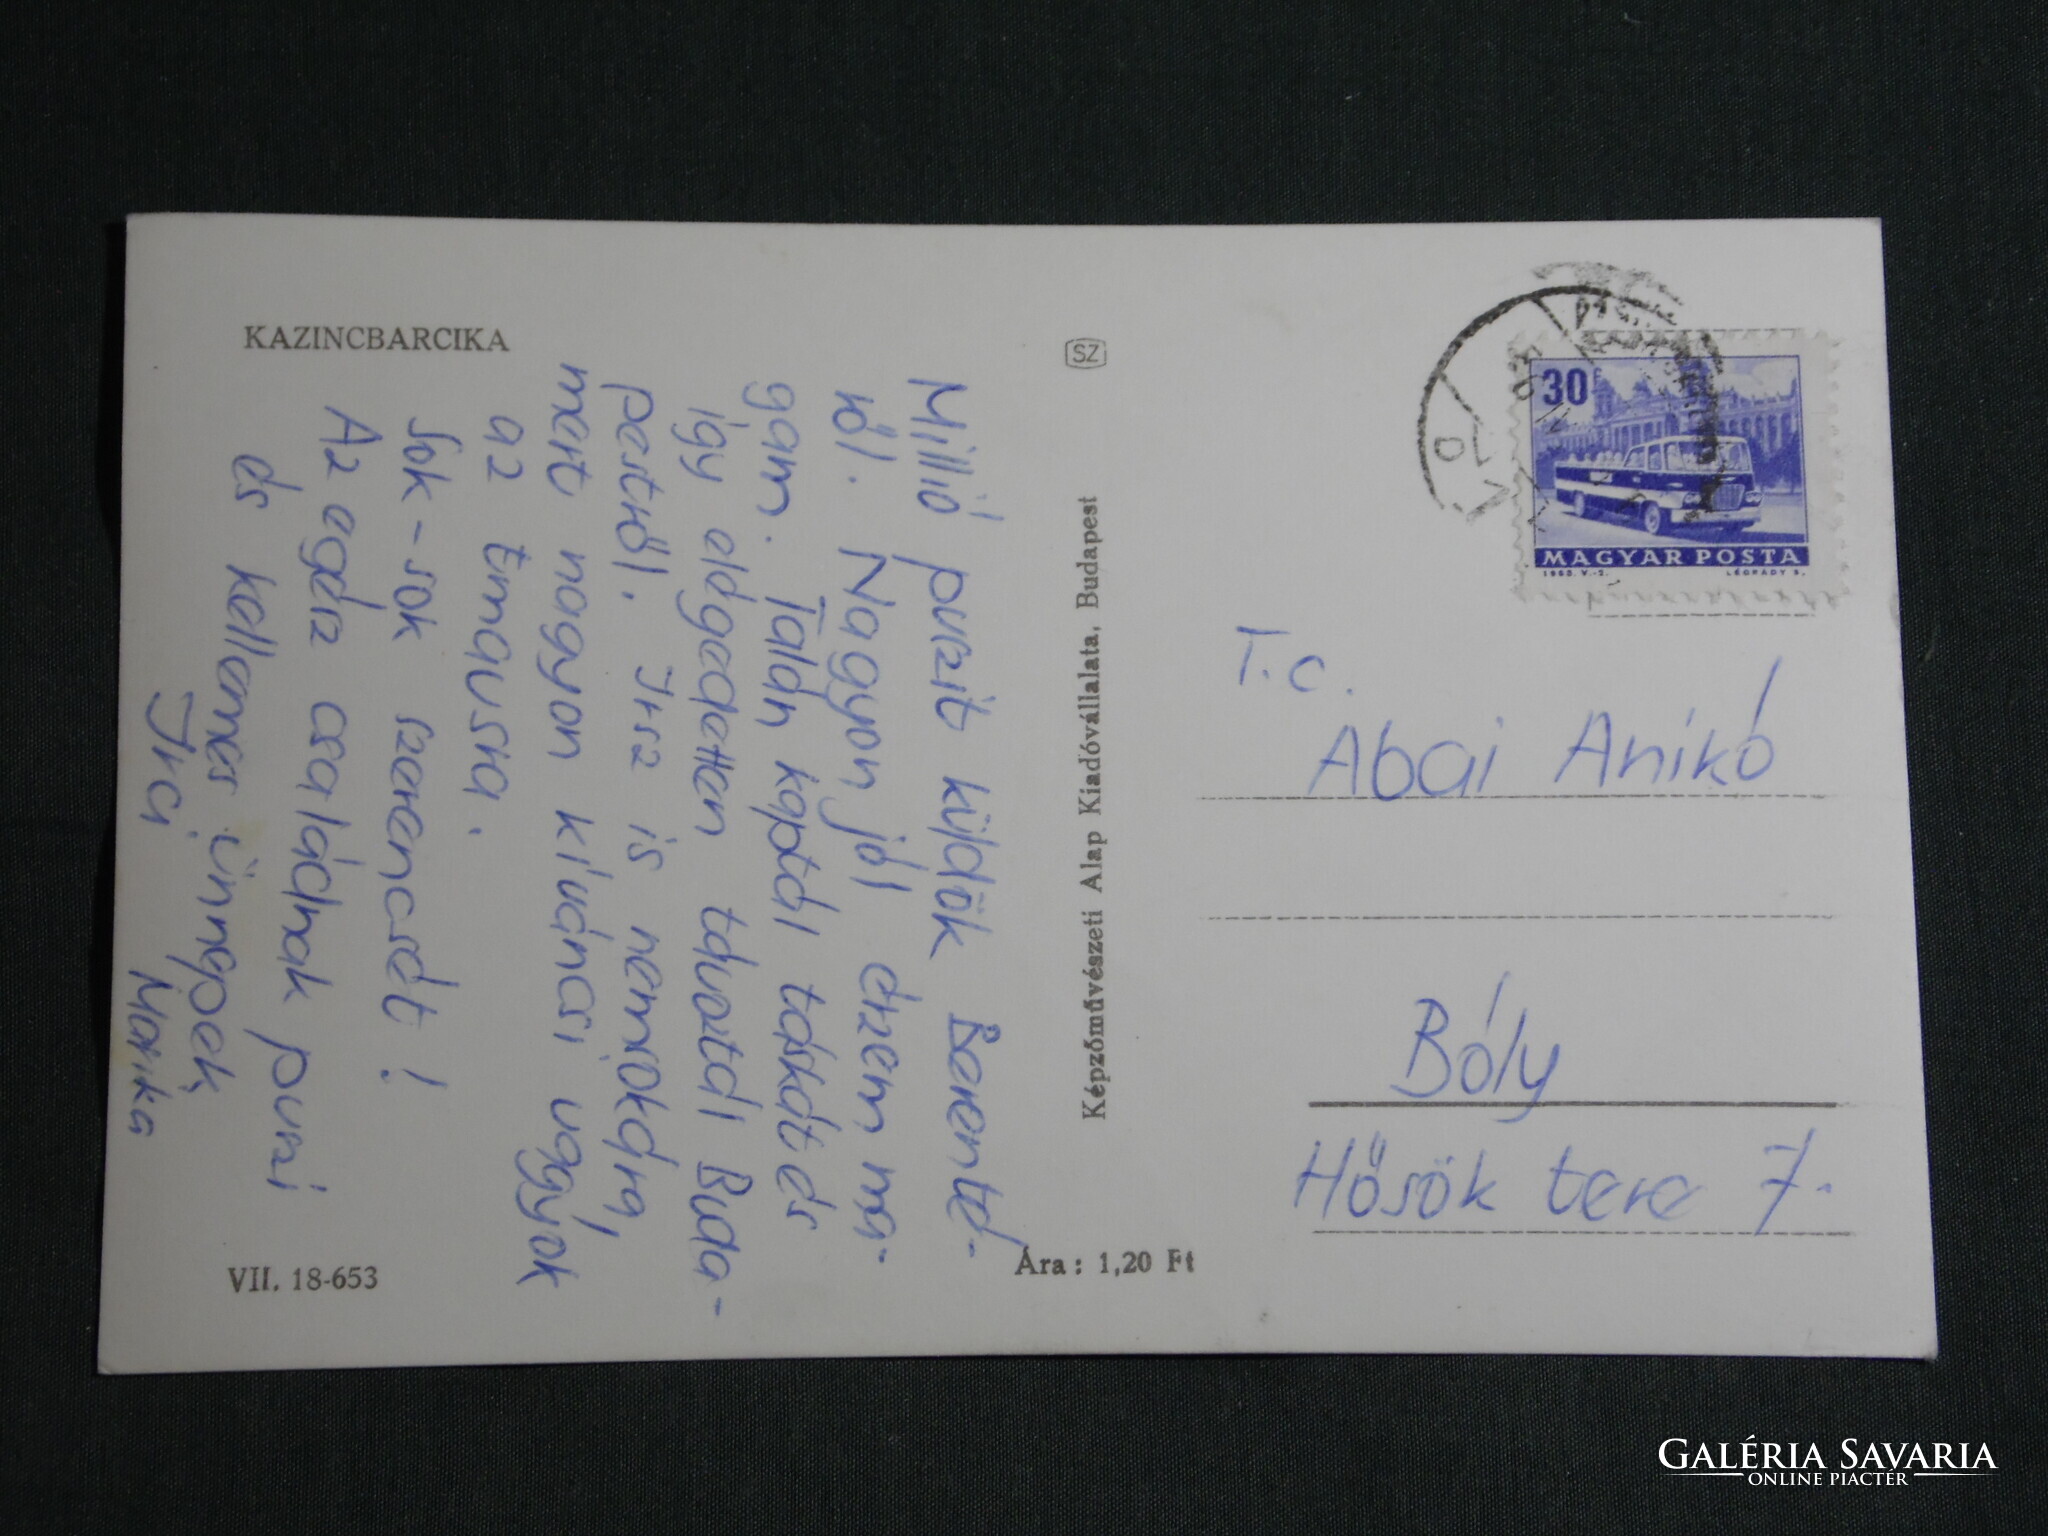 KAZINCBARCIKA
SZ
Millió puszit küldök Berenté-
ről. Nagyon jól érzem ma-
gam. Talán kaptál táskát és
így elégedetten távoztál Buda-
pestről. Irsz is nemsokára,
mert nagyon kíváncsi vagyok
az
Sok-sok szerencsét!
Az egész családnak puszi
és kellemes ünnepek
Irci Marika
VII. 18-653
Ára: 1,20 Ft
Képzőművészeti Alap Kiadóvállalata, Budapest
30 F
MAGYAR POSTA
1963. V.-2. LÉGRÁDY S.
T. c.
Abai Anikó
Bóly
Hősök tere 7.
GALÉRIA SAVARIA
ONLINE PIACTÉR